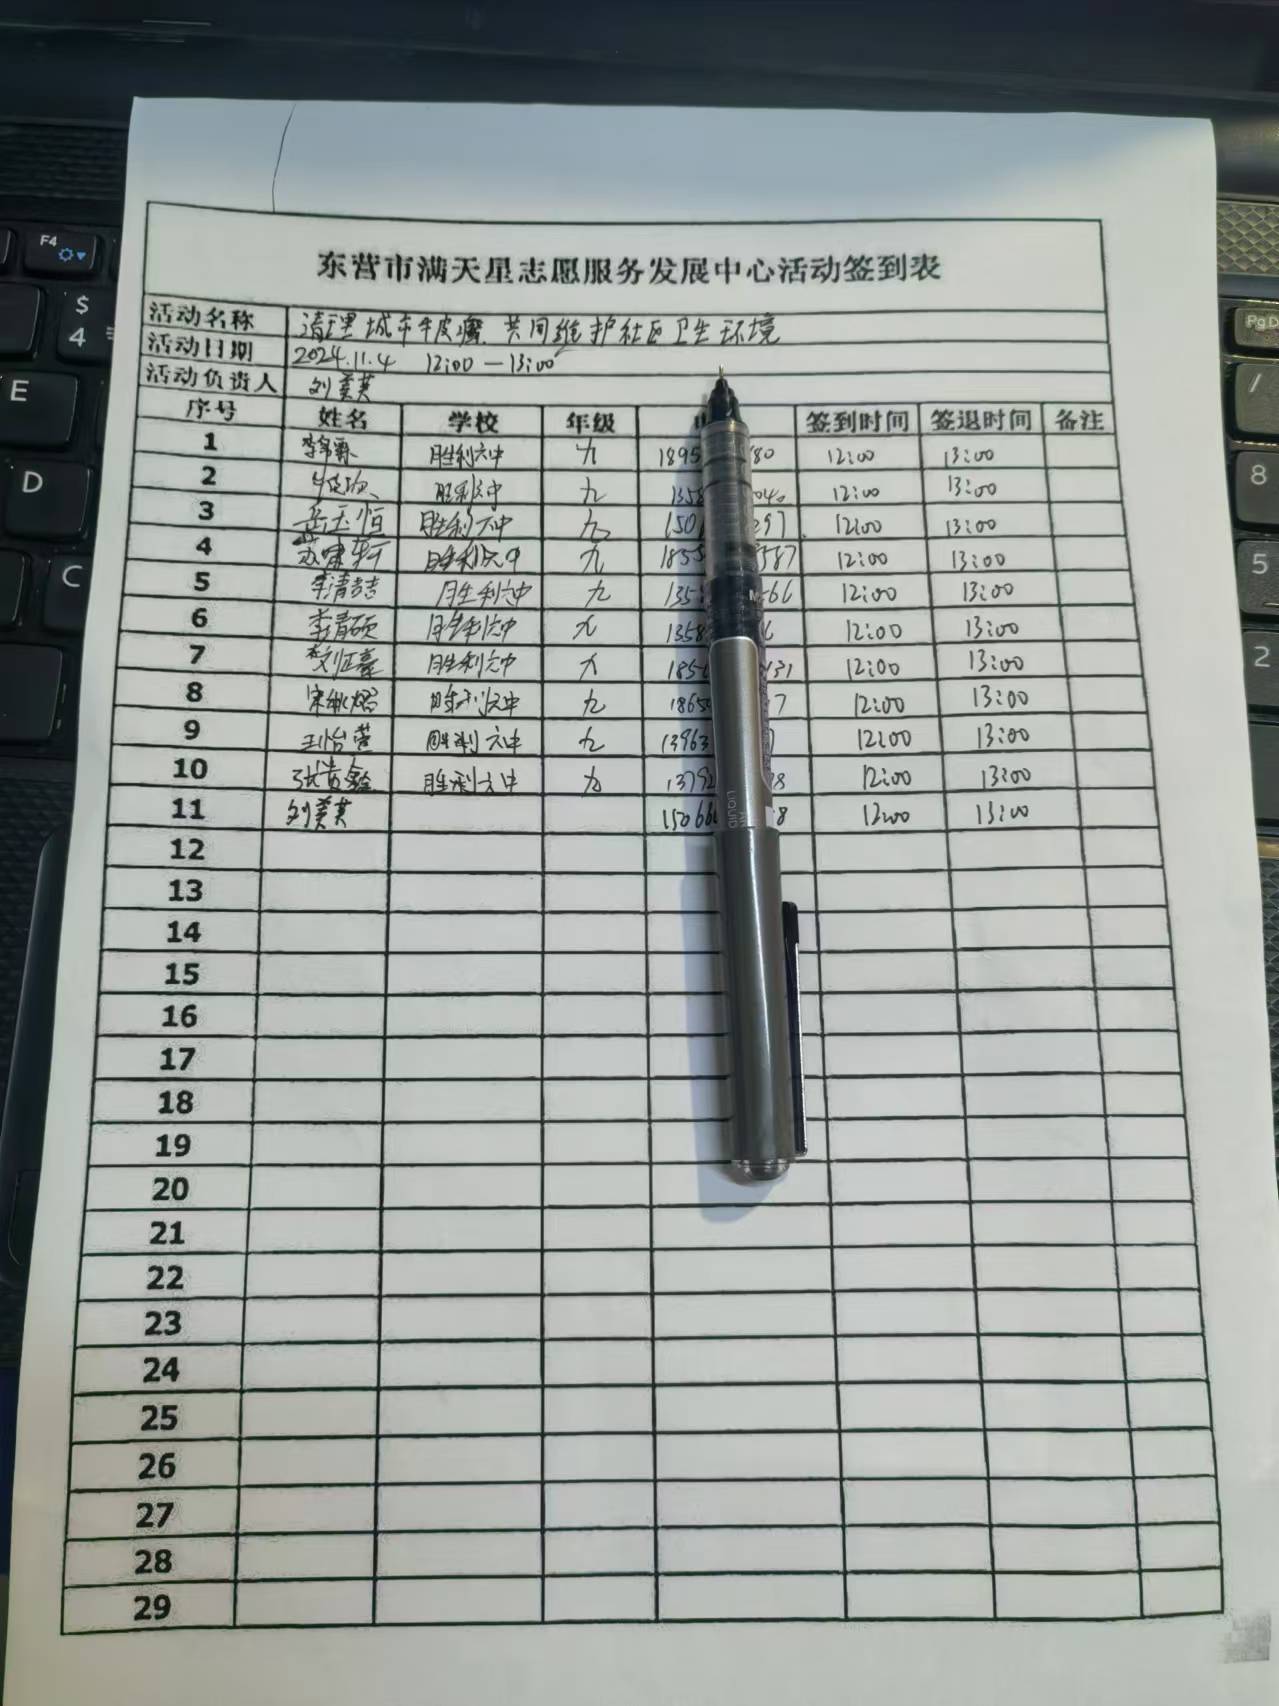 F4
$
4
E
D
C
Pg D
/
8
5
2
东营市满天星志愿服务发展中心活动签到表
活动名称 清理城市牛皮癣 共同维护社区卫生环境
活动日期 2024.11.4 12:00—13:00
活动负责人 刘美英
序号 姓名 学校 年级 签到时间 签退时间 备注
1 胜利六中 九 1895 80 12:00 13:00
2 胜利六中 九 1358 040 12:00 13:00
3 岳玉恒 胜利六中 九 150 297 12:00 13:00
4 苏啸轩 胜利六中 九 185 587 12:00 13:00
5 李清喆 胜利六中 九 135 66 12:00 13:00
6 李清硕 胜利六中 九 1358 6 12:00 13:00
7 胜利六中 九 185 131 12:00 13:00
8 胜利六中 九 1865 7 12:00 13:00
9 王怡萱 胜利六中 九 13963 12:00 13:00
10 胜利六中 九 1379 8 12:00 13:00
11 刘美英 15066 8 12:00 13:00
12
13
14
15
16
17
18
19
20
21
22
23
24
25
26
27
28
29
LIQUID